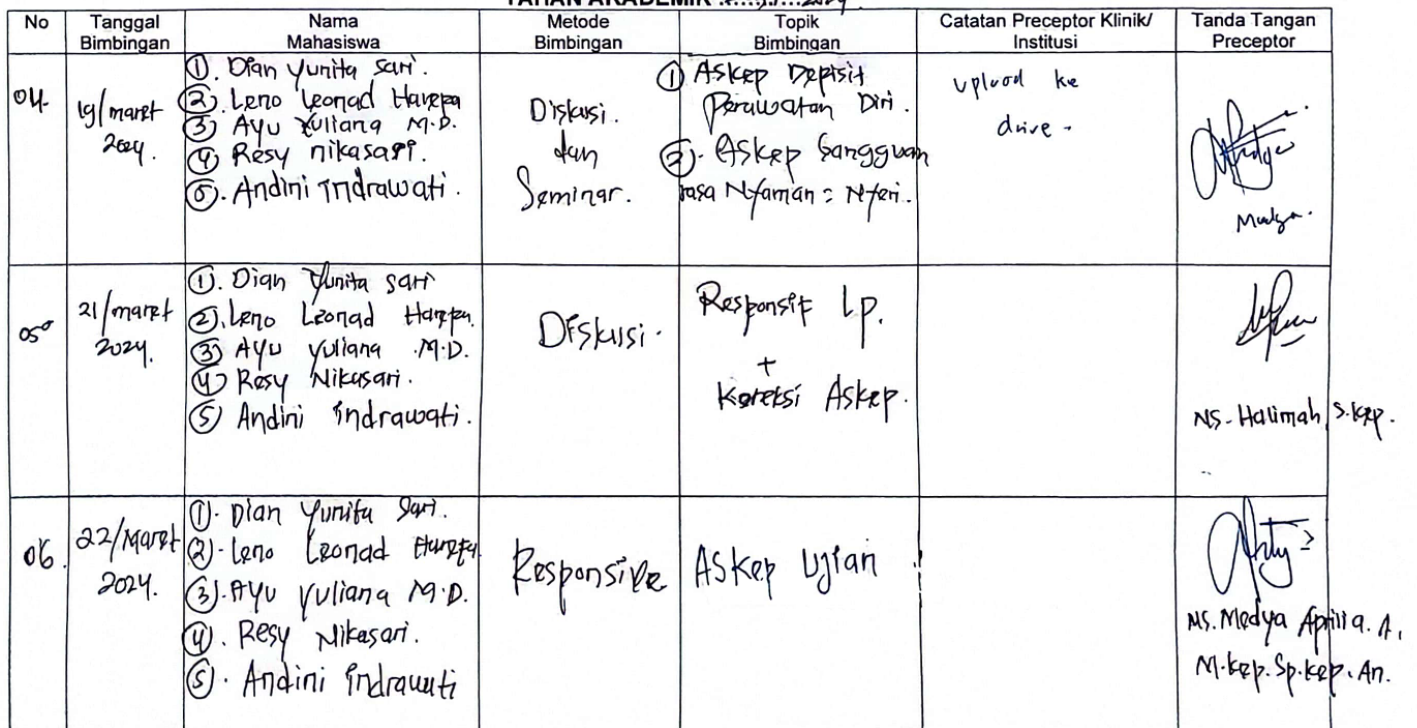 TAHAN AKADEMIK
No Tanggal Bimbingan Nama Mahasiswa Metode Bimbingan Topik Bimbingan Catatan Preceptor Klinik/ Institusi Tanda Tangan Preceptor
04.
19/maret
2024.
①. Dian Yunita Sari.
②. Leno Leonad Harepa
③ Ayu Yuliana M.D.
④ Resy nikasari.
⑤. Andini Indrawati.
Diskusi.
dan
Seminar.
① Askep Depisit
Perawatan Diri.
②. Askep Gangguan
rasa Nyaman : Nyeri.
upload ke
drive.
05
21/maret
2024.
①. Dian Yunita sari
②. Leno Leonad Harepa.
③ Ayu Yuliana .M.D.
④ Resy Nikasari.
⑤ Andini Indrawati.
Diskusi.
Responsif Lp.
+
Koreksi Askep.
NS. Halimah, S.kep.
06.
22/Maret
2024.
①. Dian Yunita Sari.
②. Leno Leonad Harepa
③. Ayu Yuliana M.D.
④. Resy Nikasari.
⑤. Andini Indrawati
Responsive
Askep Ujian
NS. Medya Aprilia. A,
M.kep.Sp.kep.An.